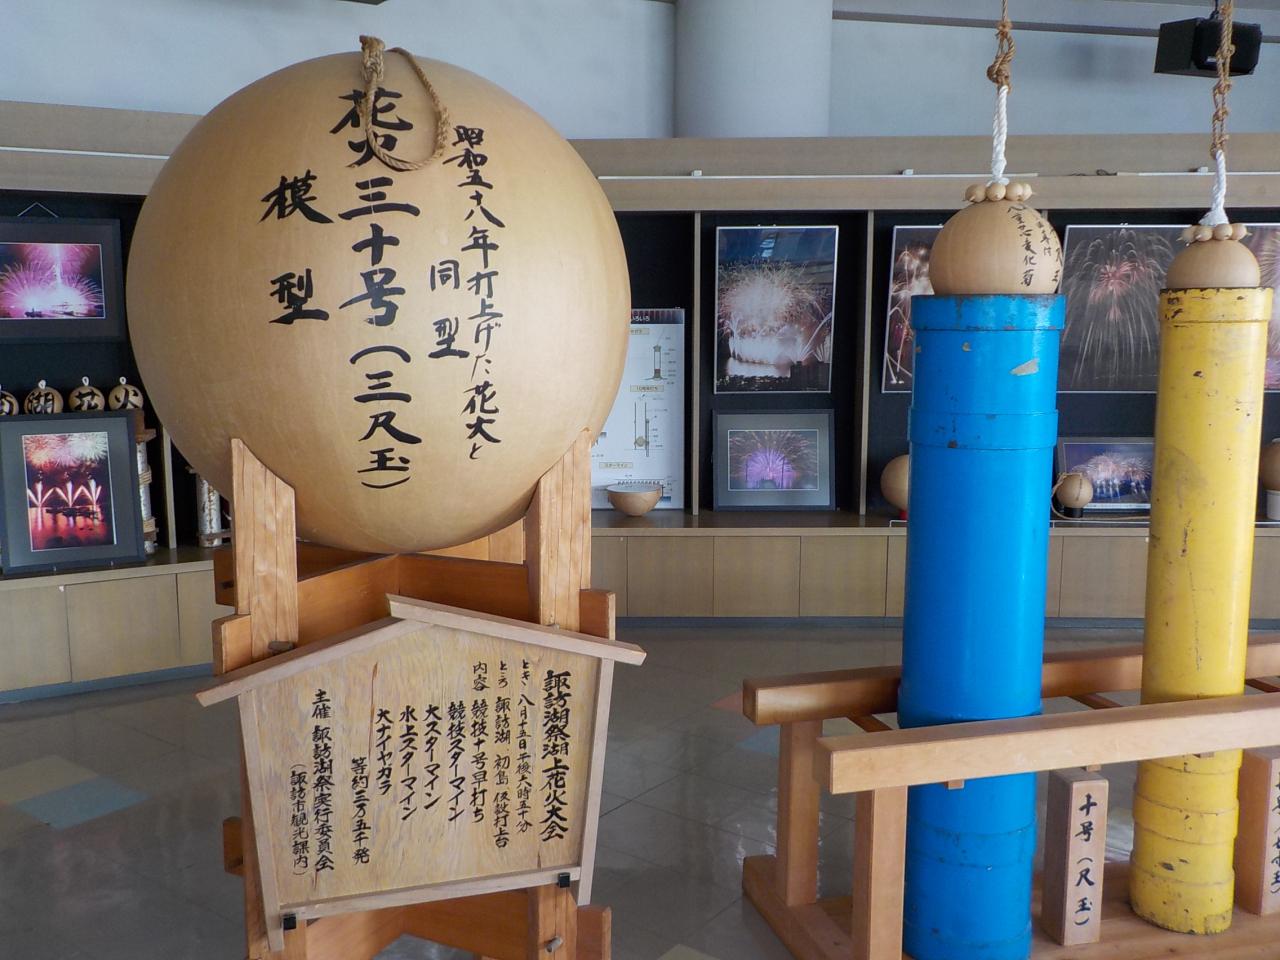 昭和五十八年打上げた花火と
同型
花火三十号(三尺玉)
模型
諏訪湖祭湖上花火大会
とき 八月十五日午後六時五十分
ところ 諏訪湖、初島仮設打上台
内容 競技十号早打ち
競技スターマイン
大スターマイン
水上スターマイン
大ナイヤガラ
等約三万五千発
主催 諏訪湖祭実行委員会
(諏訪市観光課内)
十号(尺玉)
湖
花
火
変化菊